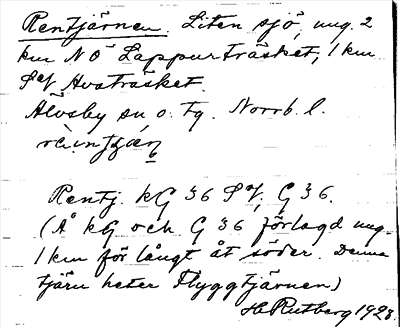 Rentjärnen. Liten sjö, ung. 2
km NO Lappurträsket, 1 km
SV Avaträsket.
Älvsby sn o. tg. Norrb. l.
Rentj. KG 36 SV, G 36.
(Å KG och G 36 förlagd ung.
1 km för långt åt söder. Denna
tjärn heter Flyggtjärnen)
H. Rutberg 1928.